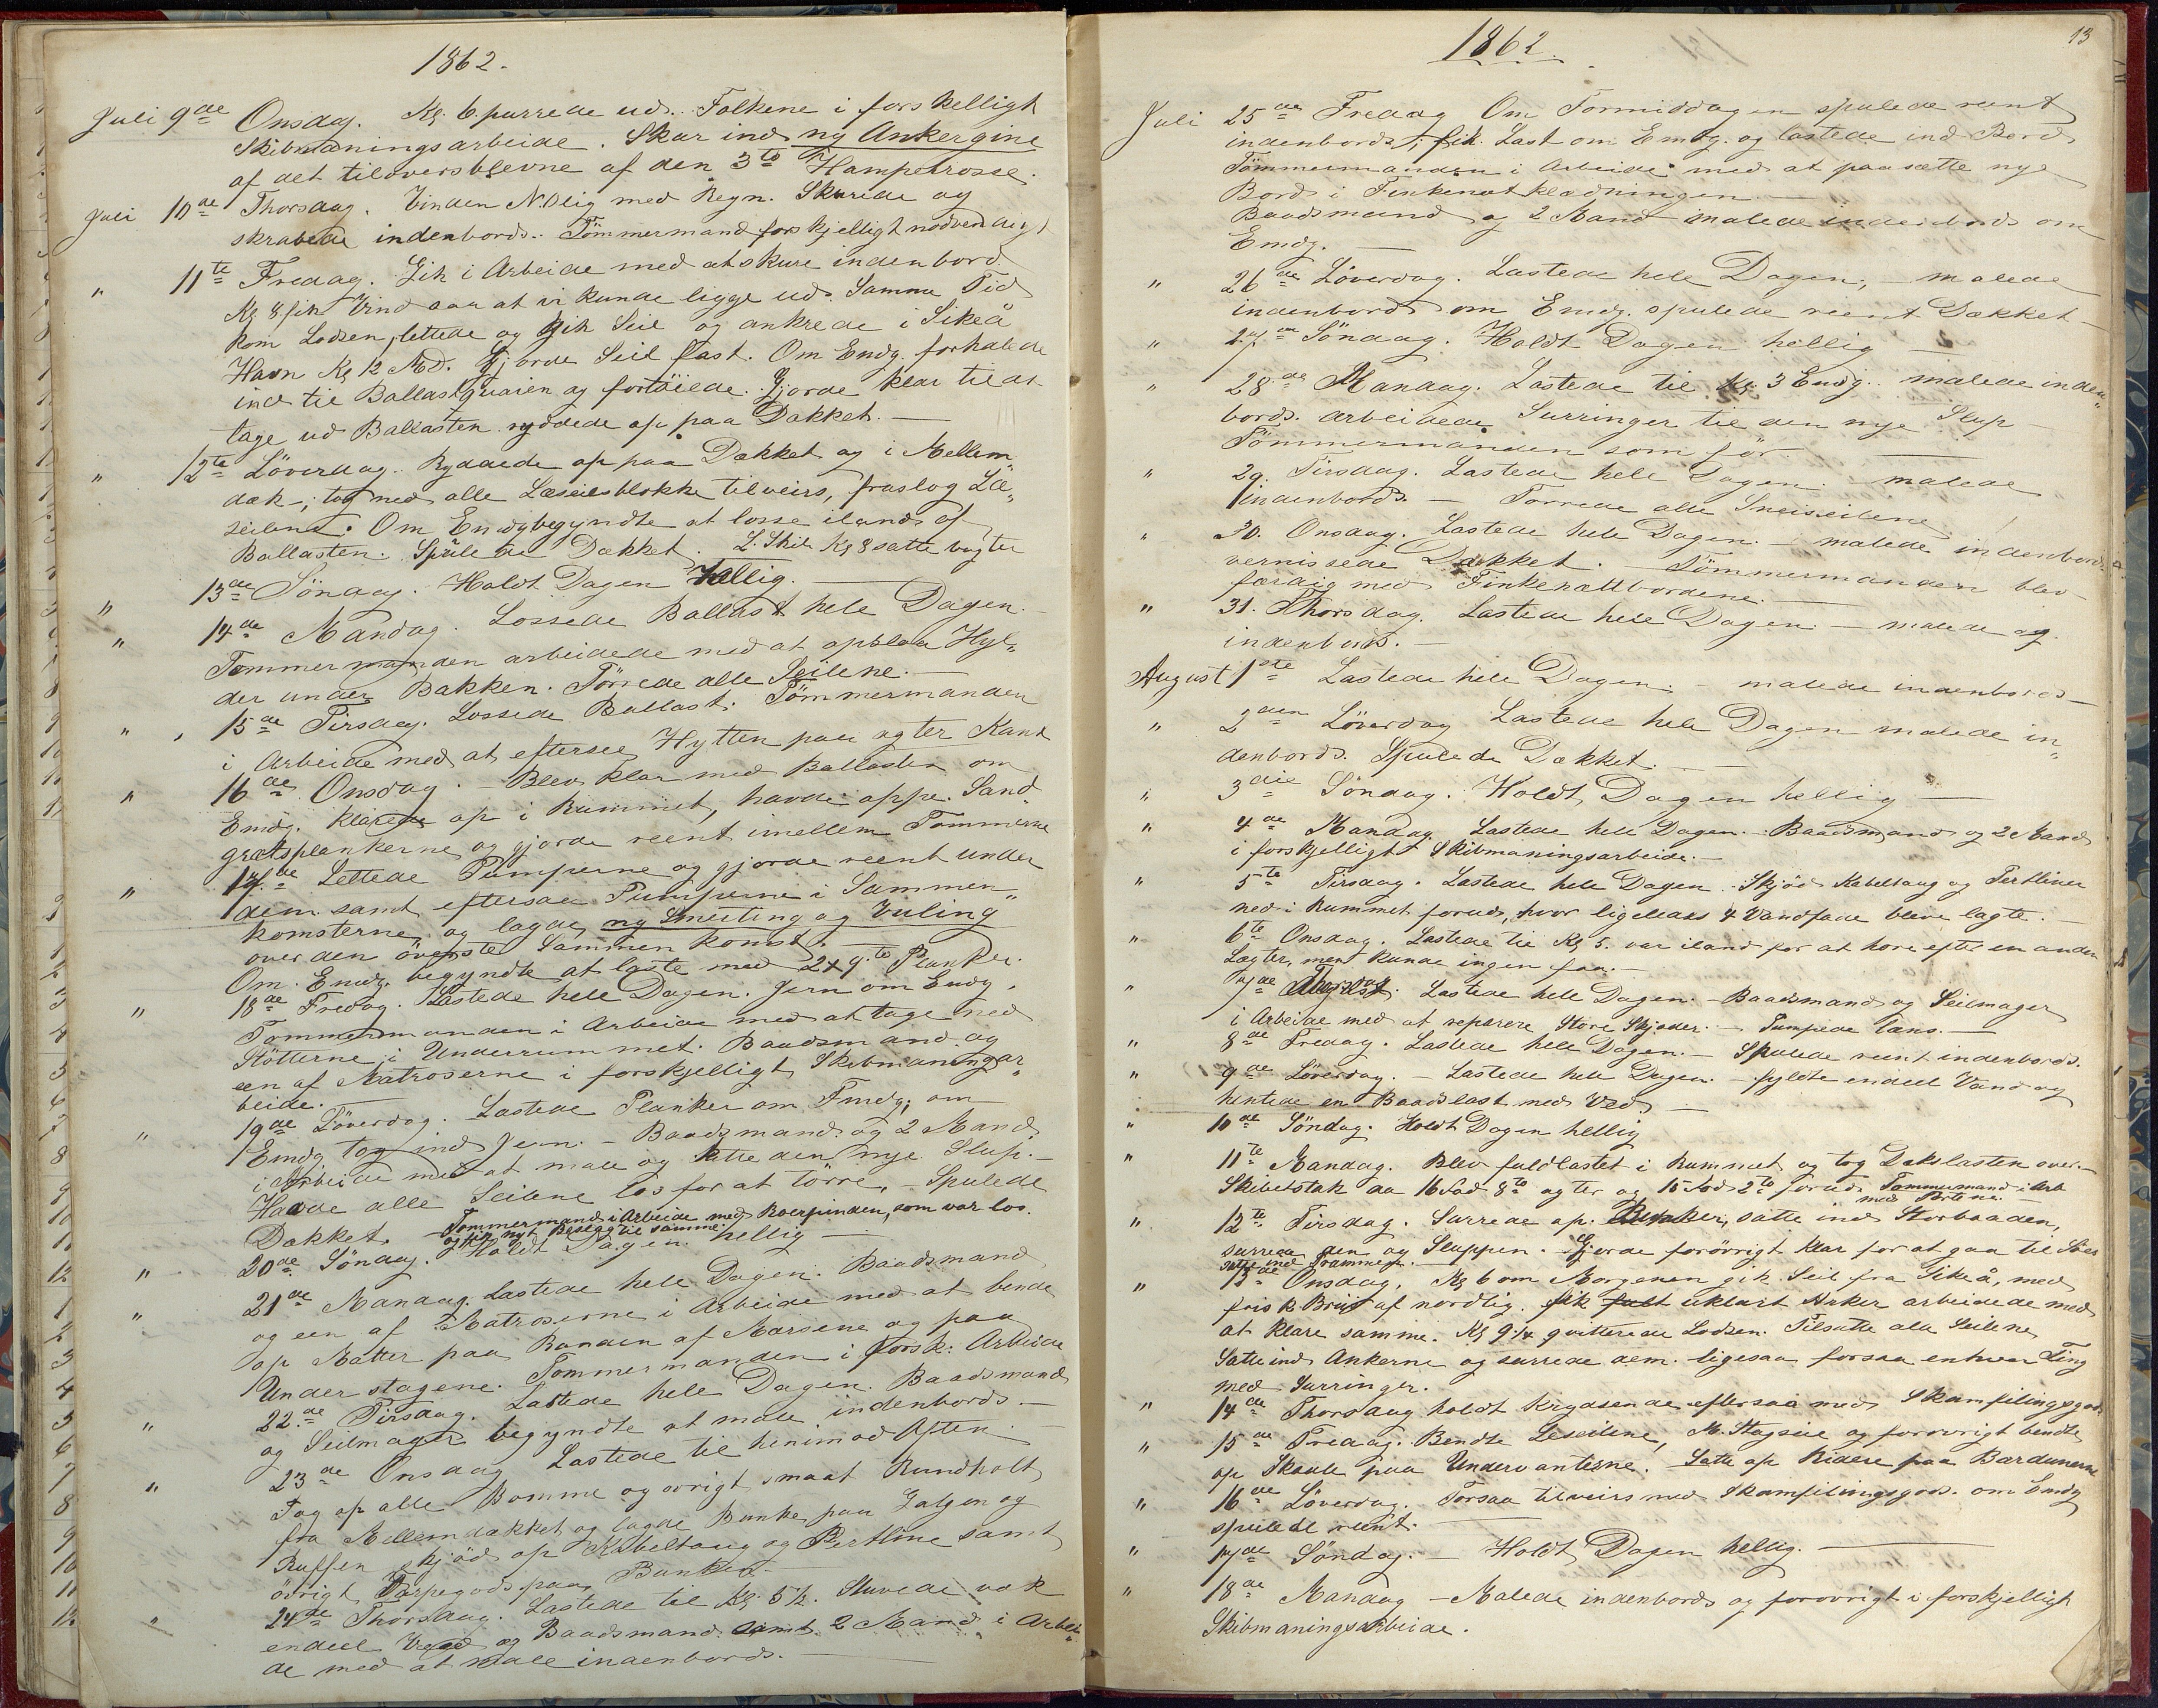 1862.
Juli 9de Onsdag. Kl. 6 purrede ud. Folkene i forskelligt
Skibmaningsarbeide. Skar ind ny Ankergine
af det tiloversblevne af den 3to Hampetrosse.
Juli 10de Thorsdag. Vinden N.Olig med Regn. Skurede og
skrabede indenbords. Tömmermand forskjelligt nödvendigt
" 11te Fredag. Gik i Arbeide med at skure indenbord.
Kl 8 fik Vind saa at vi kunde ligge ud. Samme Tid
kom Lodsen, lettede og gik Seil og ankrede i Sikeå
Havn Kl 12 Md. Gjorde Seil fast. Om Emdg. forhalede
ind til Ballastquaien og fortöiede. Gjorde klar til at
tage ud Ballasten ryddede op paa Dækket. —
" 12te Löverdag. Ryddede op paa Dækket og i Mellem„
dæk; tog ned alle Læseilsblokke tilveirs, fraslog Læ„
seilene. Om Emdg begyndte at losse iland af
Ballasten. Spülede Dækket. L. Skib Kl 8 satte vagter
" 13de Söndag. Holdt Dagen hellig. —
" 14de Mandag. Lossede Ballast hele Dagen. —
Tommermanden arbeidede med at opslaa Hyl„
der under Bakken. Törrede alle Seilene. —
" 15de Tirsdag. Lossede Ballast. Tömmermanden
i Arbeide med at eftersee Hytten paa agter Kant
" 16de Onsdag. — Blev klar med Ballasten om
Emdg. klarede op i Rummet, havde oppe Sand„
grætsplankerne og gjorde reent imellem Tømmerne
" 17de Lettede Pumperne og gjorde reent under
dem samt eftersaae Pumperne i Sammen„
komsterne og lagde ny Smerting og Vuling
over den överste Sammenkomst. —
Om Emdg. begyndte at laste med 2x9to Planker.
" 18de Fredag. Lastede hele Dagen. Jern om Emdg.
Tommermanden i Arbeide med at tage ned
Stötterne i Underrummet. Baadsmand og
een af Matroserne i forskjelligt Skibmaningsar„
beide. —
" 19de Löverdag. Lastede Planker om Fmdg; om
Emdg tog ind Jern. — Baadsmand og 2 Mand
i Arbeide med at male og sætte den nye Slup. —
Havde alle Seilene los for at törre. — Spulede
Dækket. — Tommermand i Arbeide med Roerpinden, som var los.
og fik nyt Beslag til samme.
" 20de Söndag. Holdt Dagen hellig —
" 21de Mandag. Lastede hele Dagen. Baadsmand
og een af Matroserne i Arbeide med at bende
op Matter paa Randen af Mærsene og paa
Understagene. Tommermanden i forsk: Arbeide
" 22de Tirsdag. Lastede hele Dagen. Baadsmand
og Seilmager begyndte at male indenbords. —
" 23de Onsdag Lastede til henimod Aften.
Tog op alle Bomme og ovrigt smaat Rundholt
fra Mellemdækket og lagde Bunke paa Galgen og
Ruffen Skjöd op Kabeltaug og Pertline samt
övrigt Varpegods paa Bunken
" 24de Thorsdag. Lastede til Kl. 5½. Stuvede vak
endeel Veed og Baadsmand samt 2 Mand i Arbei„
de med at male indenbords. —
13
1862.
Juli 25de Fredag Om Formiddagen spulede reent
indenbords; fik Last om Emdg. og lastede ind Bord
Tömmermanden i Arbeide med at paasætte nye
Bord i Finkenetklædningen. —
Baadsmand og 2 Mand malede indenbords om
Emdg. —
" 26de Löverdag. Lastede hele Dagen, — malede
indenbords om Emdg. spulede reent Dækket —
" 27de Söndag. Holdt Dagen hellig —
" 28de Mandag. Lastede til Kl. 3 Emdg. malede inden„
bords. arbeidede Surringer til den nye Slup —
Tömmermanden som för. —
" 29. Tirsdag. Lastede hele Dagen. — malede
indenbords. — Torrede alle Sneiseilene
" 30. Onsdag. Lastede hele Dagen. — malede indenbords.
vernissede Dækket. — Tömmermanden blev
færdig med Finkenættbordene. —
" 31. Thorsdag. Lastede hele Dagen — malede og
indenbords. —
August 1ste Lastede hele Dagen. — malede indenbords —
" 2den Löverdag Lastede hele Dagen malede in„
denbords. Spulede Dækket. —
" 3die Söndag. Holdt Dagen hellig —
" 4de Mandag. Lastede hele Dagen. Baadsmand og 2 Mand
i forskjelligt Skibmaningsarbeide. —
" 5te Tirsdag. Lastede hele Dagen. Skjöd Kabeltaug og Pertliner
ned i Rummet forud, hvor ligeledes 4 Vandfade bleve lagte. —
" 6te Onsdag. Lastede til Kl 5. var iland for at höre efter en anden
Lægter, ment kunde ingen faa. —
" 7de Thorsdag. Lastede hele Dagen. — Baadsmand og Seilmager
i Arbeide med at reparere Store Skjöder. — Pumpede læns. —
" 8de Fredag. Lastede hele Dagen. — Spulede reent indenbords.
" 9de Löverdag. — Lastede hele Dagen. — fyldte endeel Vand og
hentede en Baadslast med Ved. —
" 10de Söndag. Holdt Dagen hellig
" 11te Mandag. Blev fuldlastet i Rummet og tog Dækslasten over. —
Skibetstak aa 16 Fod 8to agter og 15 Fod 2to forud. Tommermand i Arb
med Portene.
" 12te Tirsdag. Surrede op. Bunker, satte ind Storbaaden,
surrede den og Sluppen. Gjorde forövrigt klar for at gaa til Söes
satte ind Prammen. —
" 13de Onsdag, Kl 6 om Morgenen gik Seil fra Sikeå, med
frisk Bris af nordlig. fik fult uklart Anker arbeidede med
at klare samme. Kl 9 1/4 quitterede Lodsen. Tilsatte alle Seilene
Satte ind Ankerne og surrede dem. ligesaa forsaa enhver Ting
med Surringer.
" 14de Thorsdag holdt krydsende eftersaa med Skamfilingsgods
" 15de Fredag. Bendte Leseilene, M. Stagseil og forovrigt bendte
op Skaale paa Undervanterne. Satte op Ridere paa Bardunerne
" 16de Löverdag. Forsaa tilveirs med Skamfilingsgods. om Emdg
spulede reent. —
" 17de Söndag. — Holdt Dagen hellig. —
" 18de Mandag — Malede indenbords og forovrigt i forskjelligt
Skibmaningsarbeide.